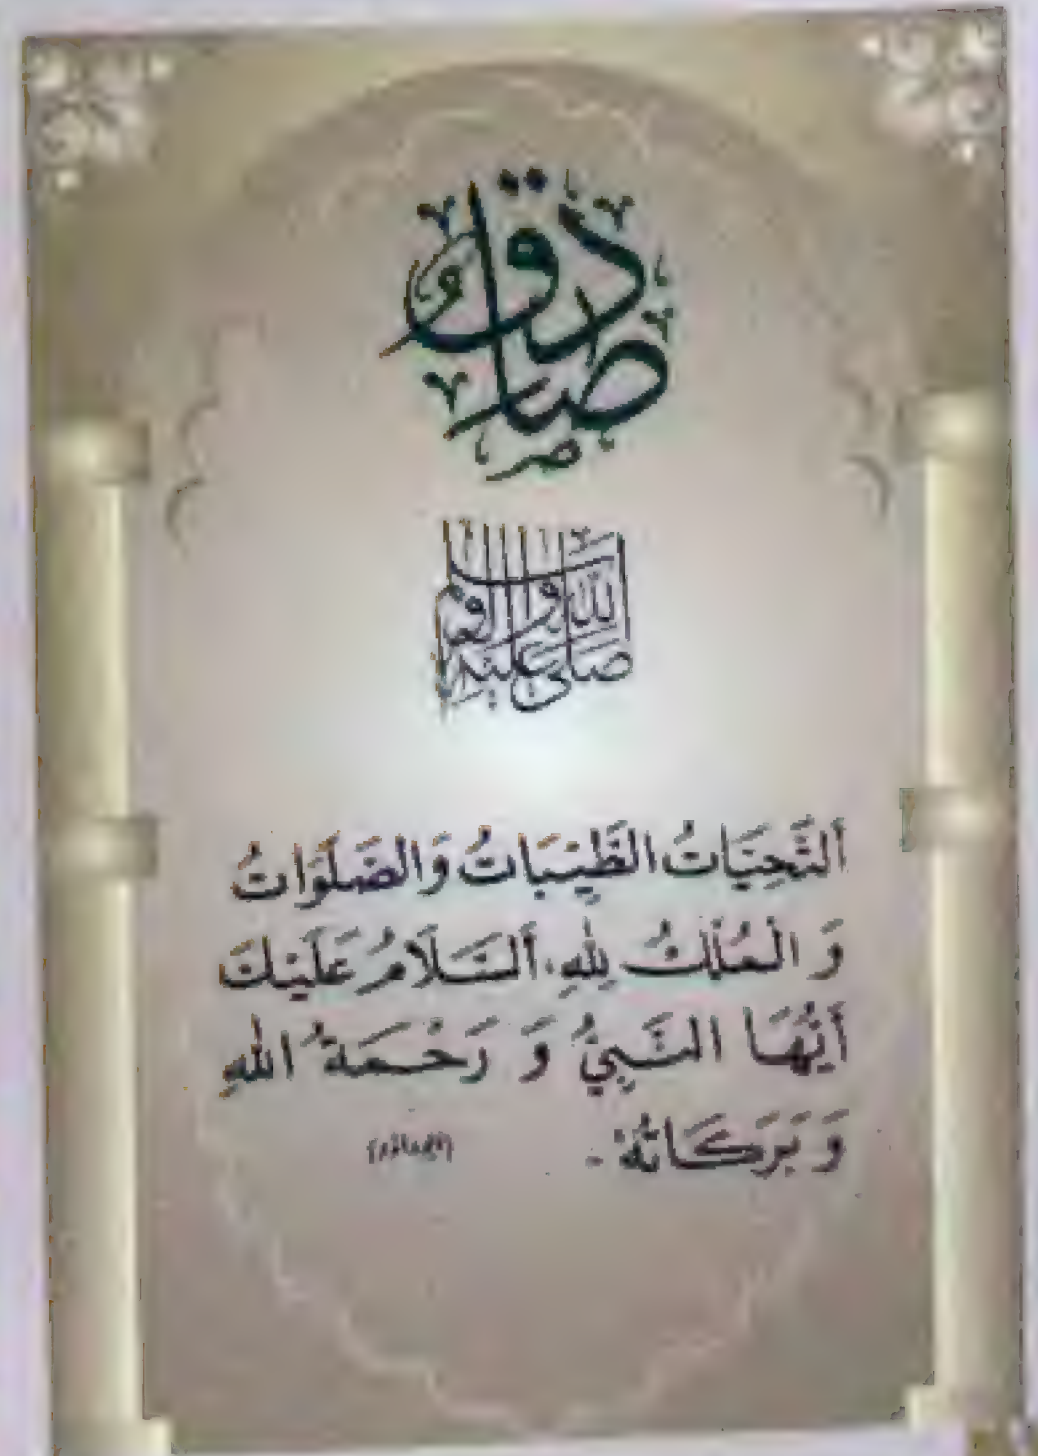 صَادِقٌ
صلى الله عليه وآله وسلم
اَلتَّحِيَّاتُ الطَّيِّبَاتُ وَالصَّلَوَاتُ
وَ الْمُلْكُ لِلّٰهِ، اَلسَّلَامُ عَلَيْكَ
أَيُّهَا النَّبِيُّ وَ رَحْمَةُ اللهِ
وَ بَرَكَاتُهُ۔